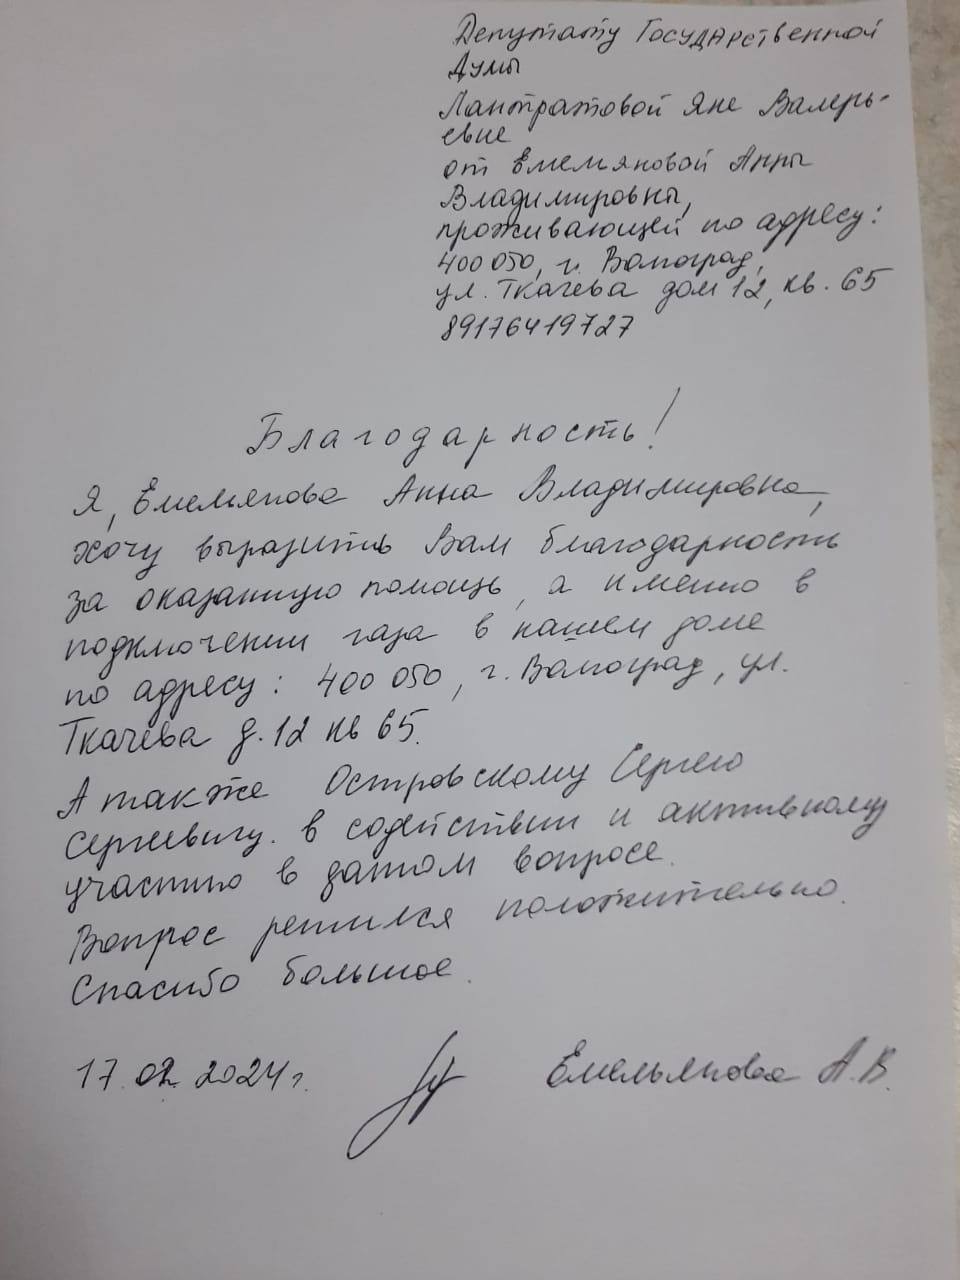 Депутату Государственной
Думы
Лантратовой Яне Валерь-
евне
от Емельяновой Анны
Владимировны,
проживающей по адресу:
400 050, г. Волгоград,
ул. Ткачева дом 12, кв. 65
89176419727
Благодарность!
Я, Емельянова Анна Владимировна,
хочу выразить Вам благодарность
за оказанную помощь, а именно в
подключении газа в нашем доме
по адресу: 400 050, г. Волгоград, ул.
Ткачева д. 12 кв 65.
А также Островскому Сергею
Сергеевичу. в содействии и активному
участию в данном вопросе.
Вопрос решился положительно.
Спасибо большое.
17.02.2024г. Емельянова А.В.